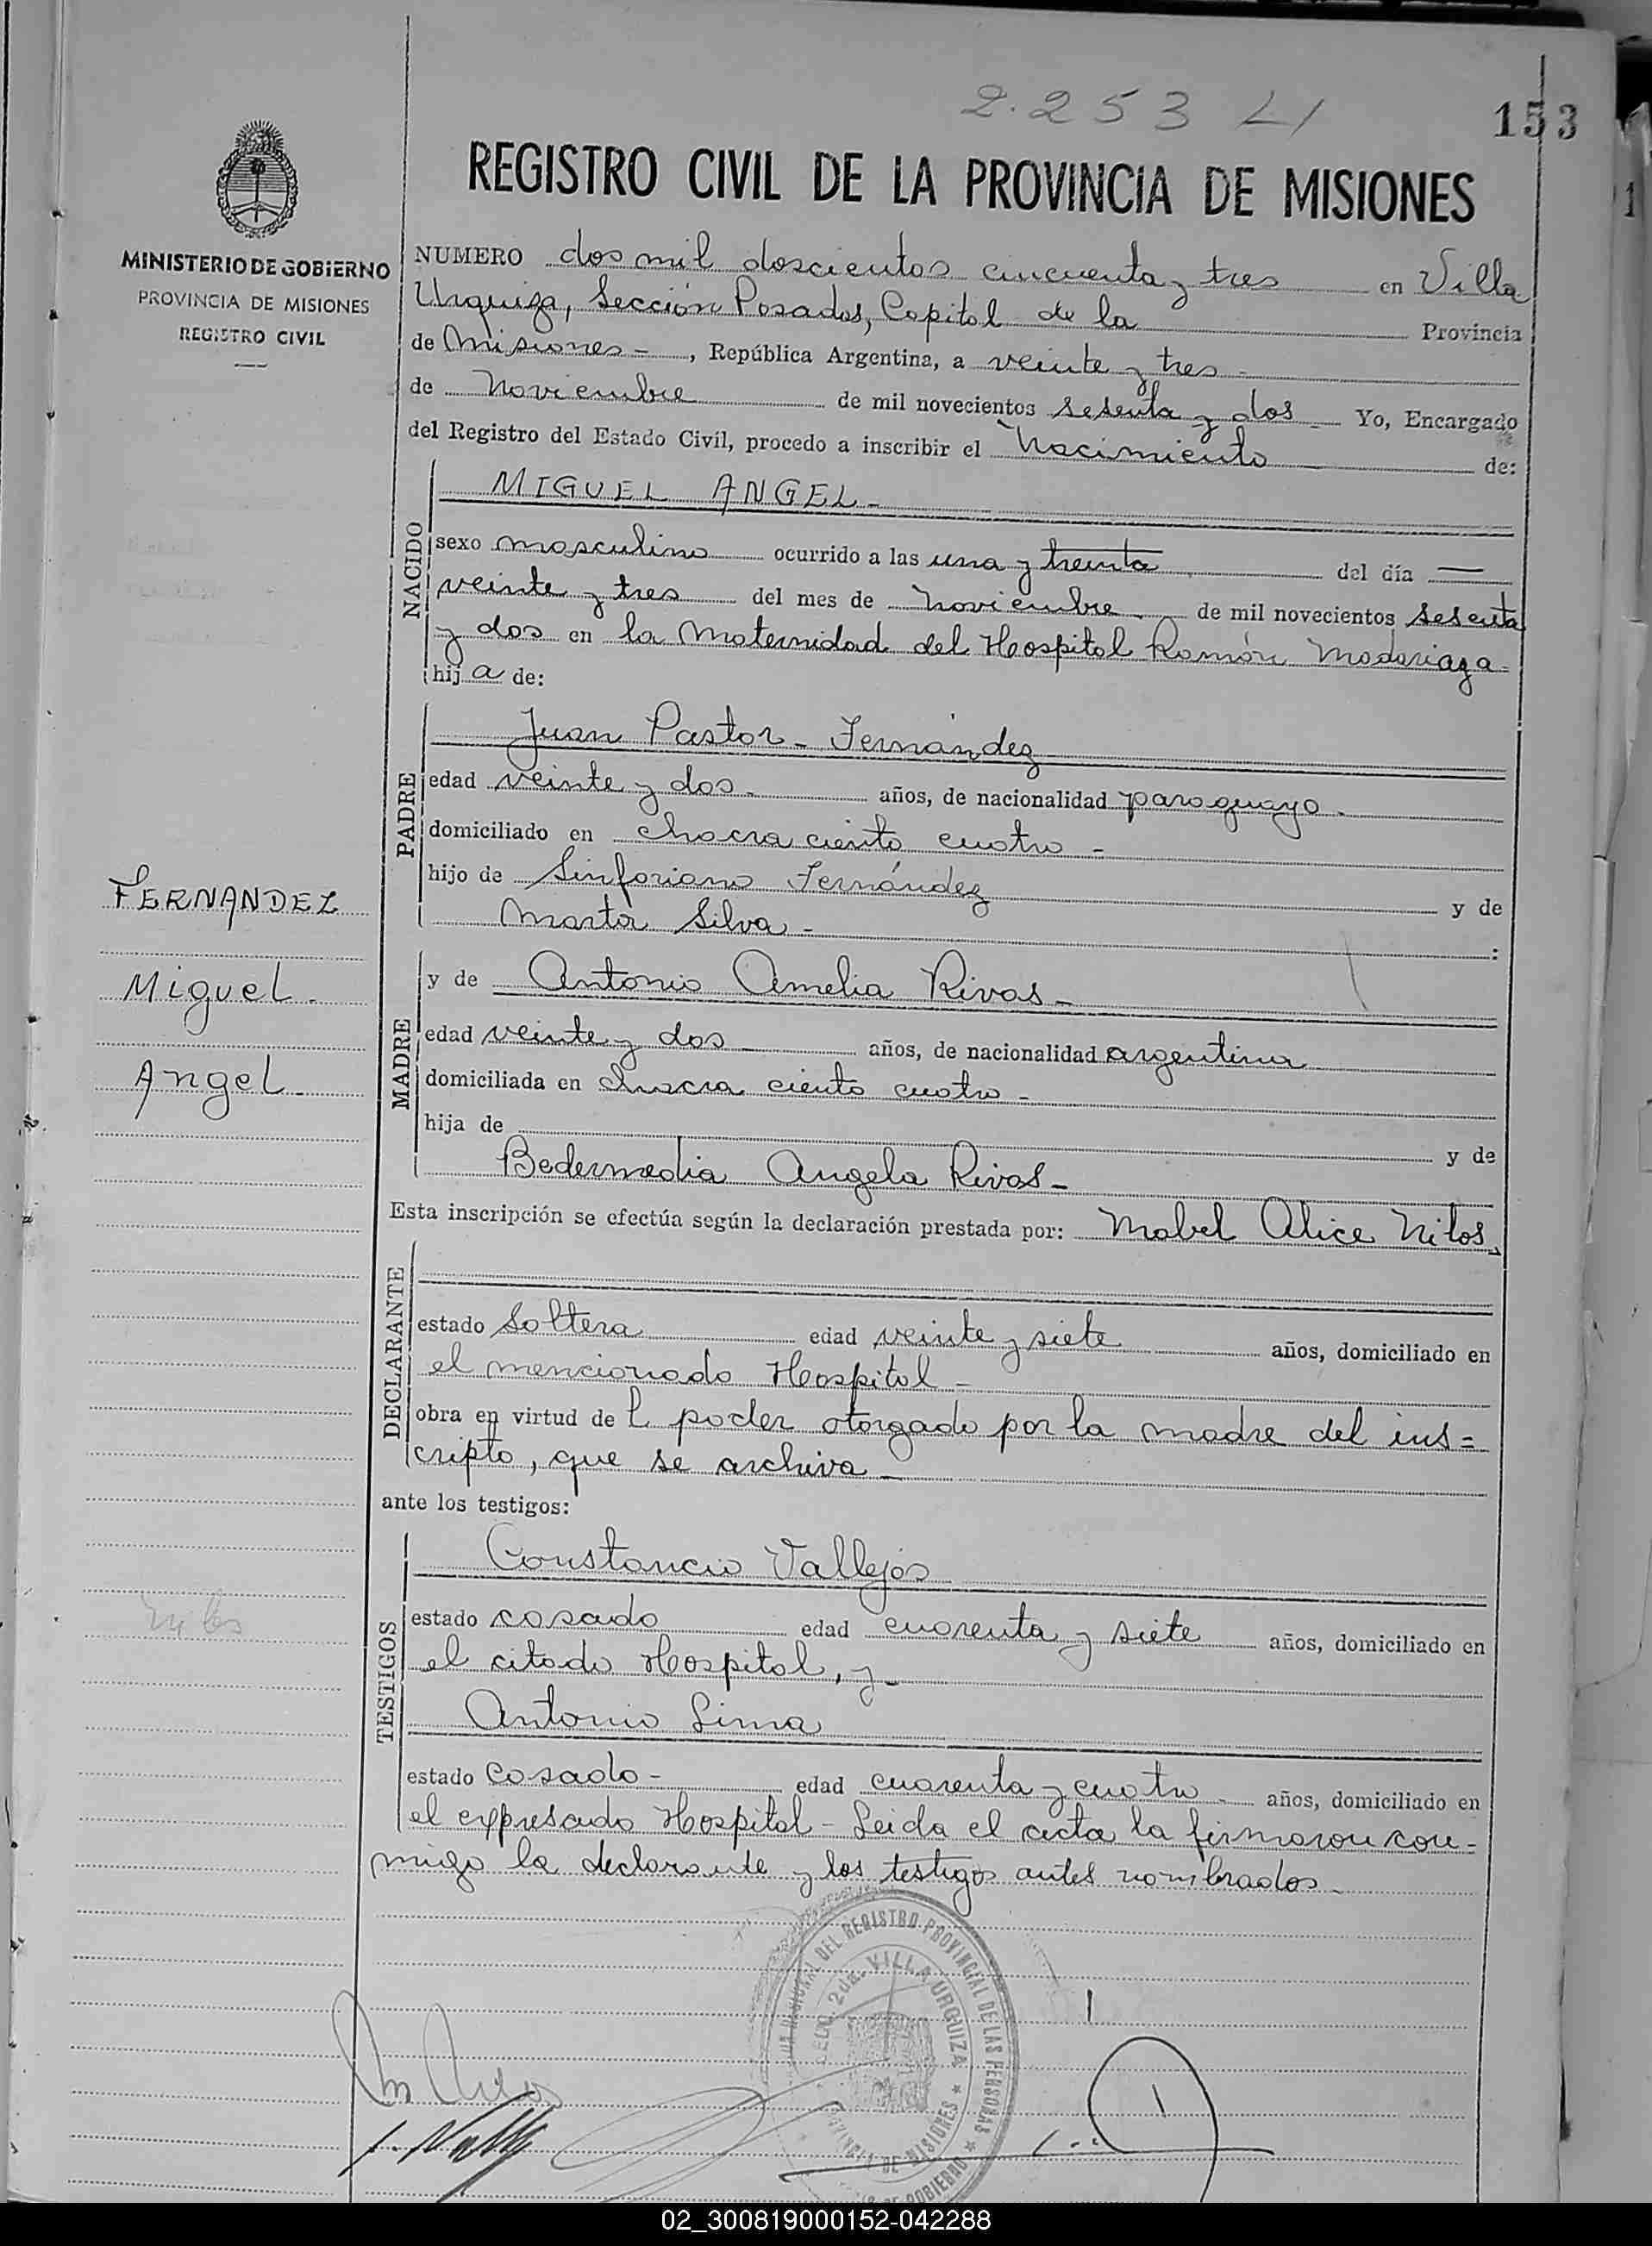 2.253 LI
153
REGISTRO CIVIL DE LA PROVINCIA DE MISIONES
MINISTERIO DE GOBIERNO
PROVINCIA DE MISIONES
REGISTRO CIVIL
NUMERO dos mil doscientos cincuenta y tres en Villa
Urquiza, Sección Posadas, Capital de la Provincia
de Misiones - , República Argentina, a veinte y tres -
de Noviembre de mil novecientos sesenta y dos - Yo, Encargado
del Registro del Estado Civil, procedo a inscribir el Nacimiento de:
NACIDO
MIGUEL ANGEL -
sexo masculino ocurrido a las una y treinta del día —
veinte y tres del mes de Noviembre de mil novecientos sesenta
y dos en la Maternidad del Hospital Ramón Madariaga -
hija de:
PADRE
Juan Pastor - Fernández
edad veinte y dos - años, de nacionalidad paraguayo -
domiciliado en chacra ciento cuatro -
hijo de Sinforiano Fernández y de
Marta Silva - :
FERNANDEZ
Miguel -
Angel -
MADRE
y de Antonia Amelia Rivas -
edad veinte y dos años, de nacionalidad argentina
domiciliada en chacra ciento cuatro -
hija de y de
Bedermedia Angela Rivas -
Esta inscripción se efectúa según la declaración prestada por: Mabel Alice Nilos,
DECLARANTE
estado Soltera edad veinte y siete años, domiciliado en
el mencionado Hospital -
obra en virtud del poder otorgado por la madre del ins=
cripto, que se archiva -
ante los testigos:
TESTIGOS
Constancio Vallejos
estado casado edad cuarenta y siete años, domiciliado en
el citado Hospital, y -
Antonio Lima
estado Casado - edad cuarenta y cuatro - años, domiciliado en
el expresado Hospital - Leida el acta la firmaron con=
migo la declarante y los testigos antes nombrados -
DEL REGISTRO PROVINCIAL DE LAS PERSONAS
2da. VILLA URQUIZA
DE MISIONES
02_300819000152-042288